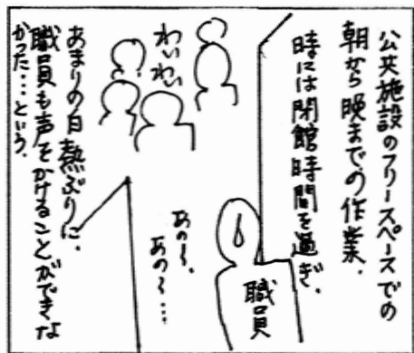 公共施設のフリースペースでの
朝から晩までの作業。
時には閉館時間を過ぎ、
わい わい
あの〜、
あの〜…
職員
あまりの白熱ぶりに、
職員も声をかけることができな
かった…という。